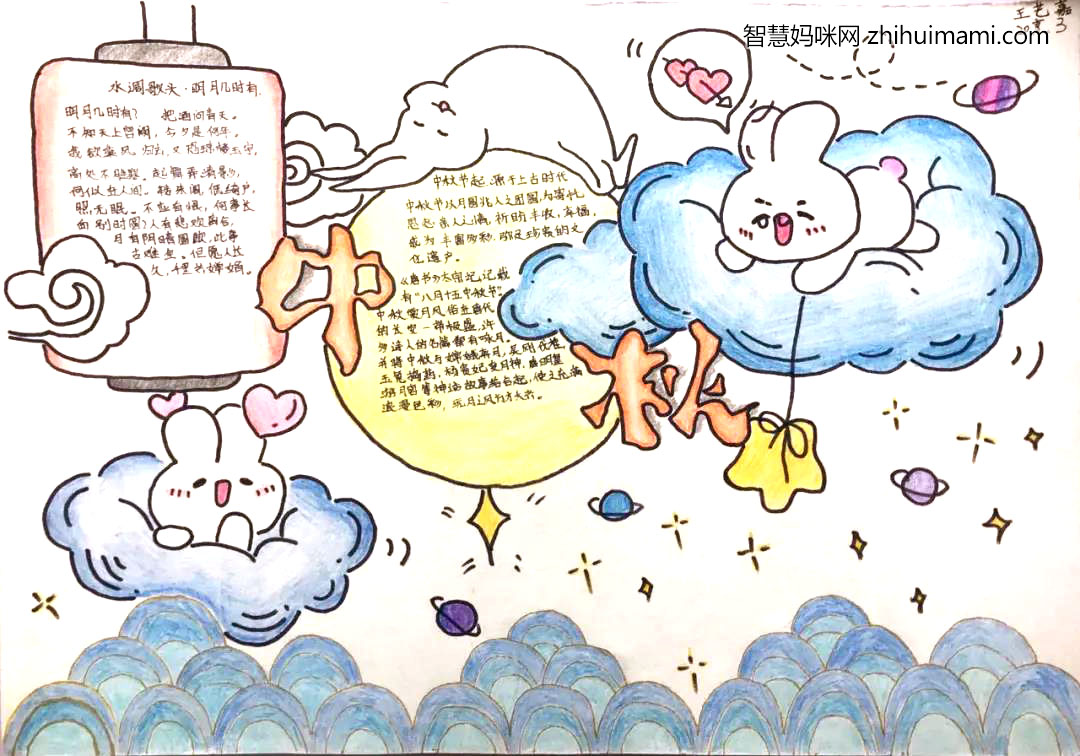 智慧妈咪网 zhihuimami.com
水调歌头·明月几时有
明月几时有? 把酒问青天。
不知天上宫阙,今夕是何年。
我欲乘风归去,又恐琼楼玉宇,
高处不胜寒。起舞弄清影,
何似在人间。转朱阁,低绮户,
照无眠。不应有恨,何事长
向别时圆?人有悲欢离合,
月有阴晴圆缺,此事
古难全。但愿人长
久,千里共婵娟。
中秋节起源于上古时代
中秋节以月圆兆人之团圆,为寄托
思念亲人之情,祈盼丰收、幸福,
成为丰富多彩、弥足珍贵的文
化遗产。
《唐书·太宗记》记载
有“八月十五中秋节”。
中秋赏月风俗在唐代
的长安一带极盛,许
多诗人的名篇都有咏月。
并将中秋与嫦娥奔月、吴刚伐桂、
玉兔捣药、杨贵妃变月神、唐明皇
游月宫等神话故事结合起,使之充满
浪漫色彩,玩月之风方才大兴。
中
秋